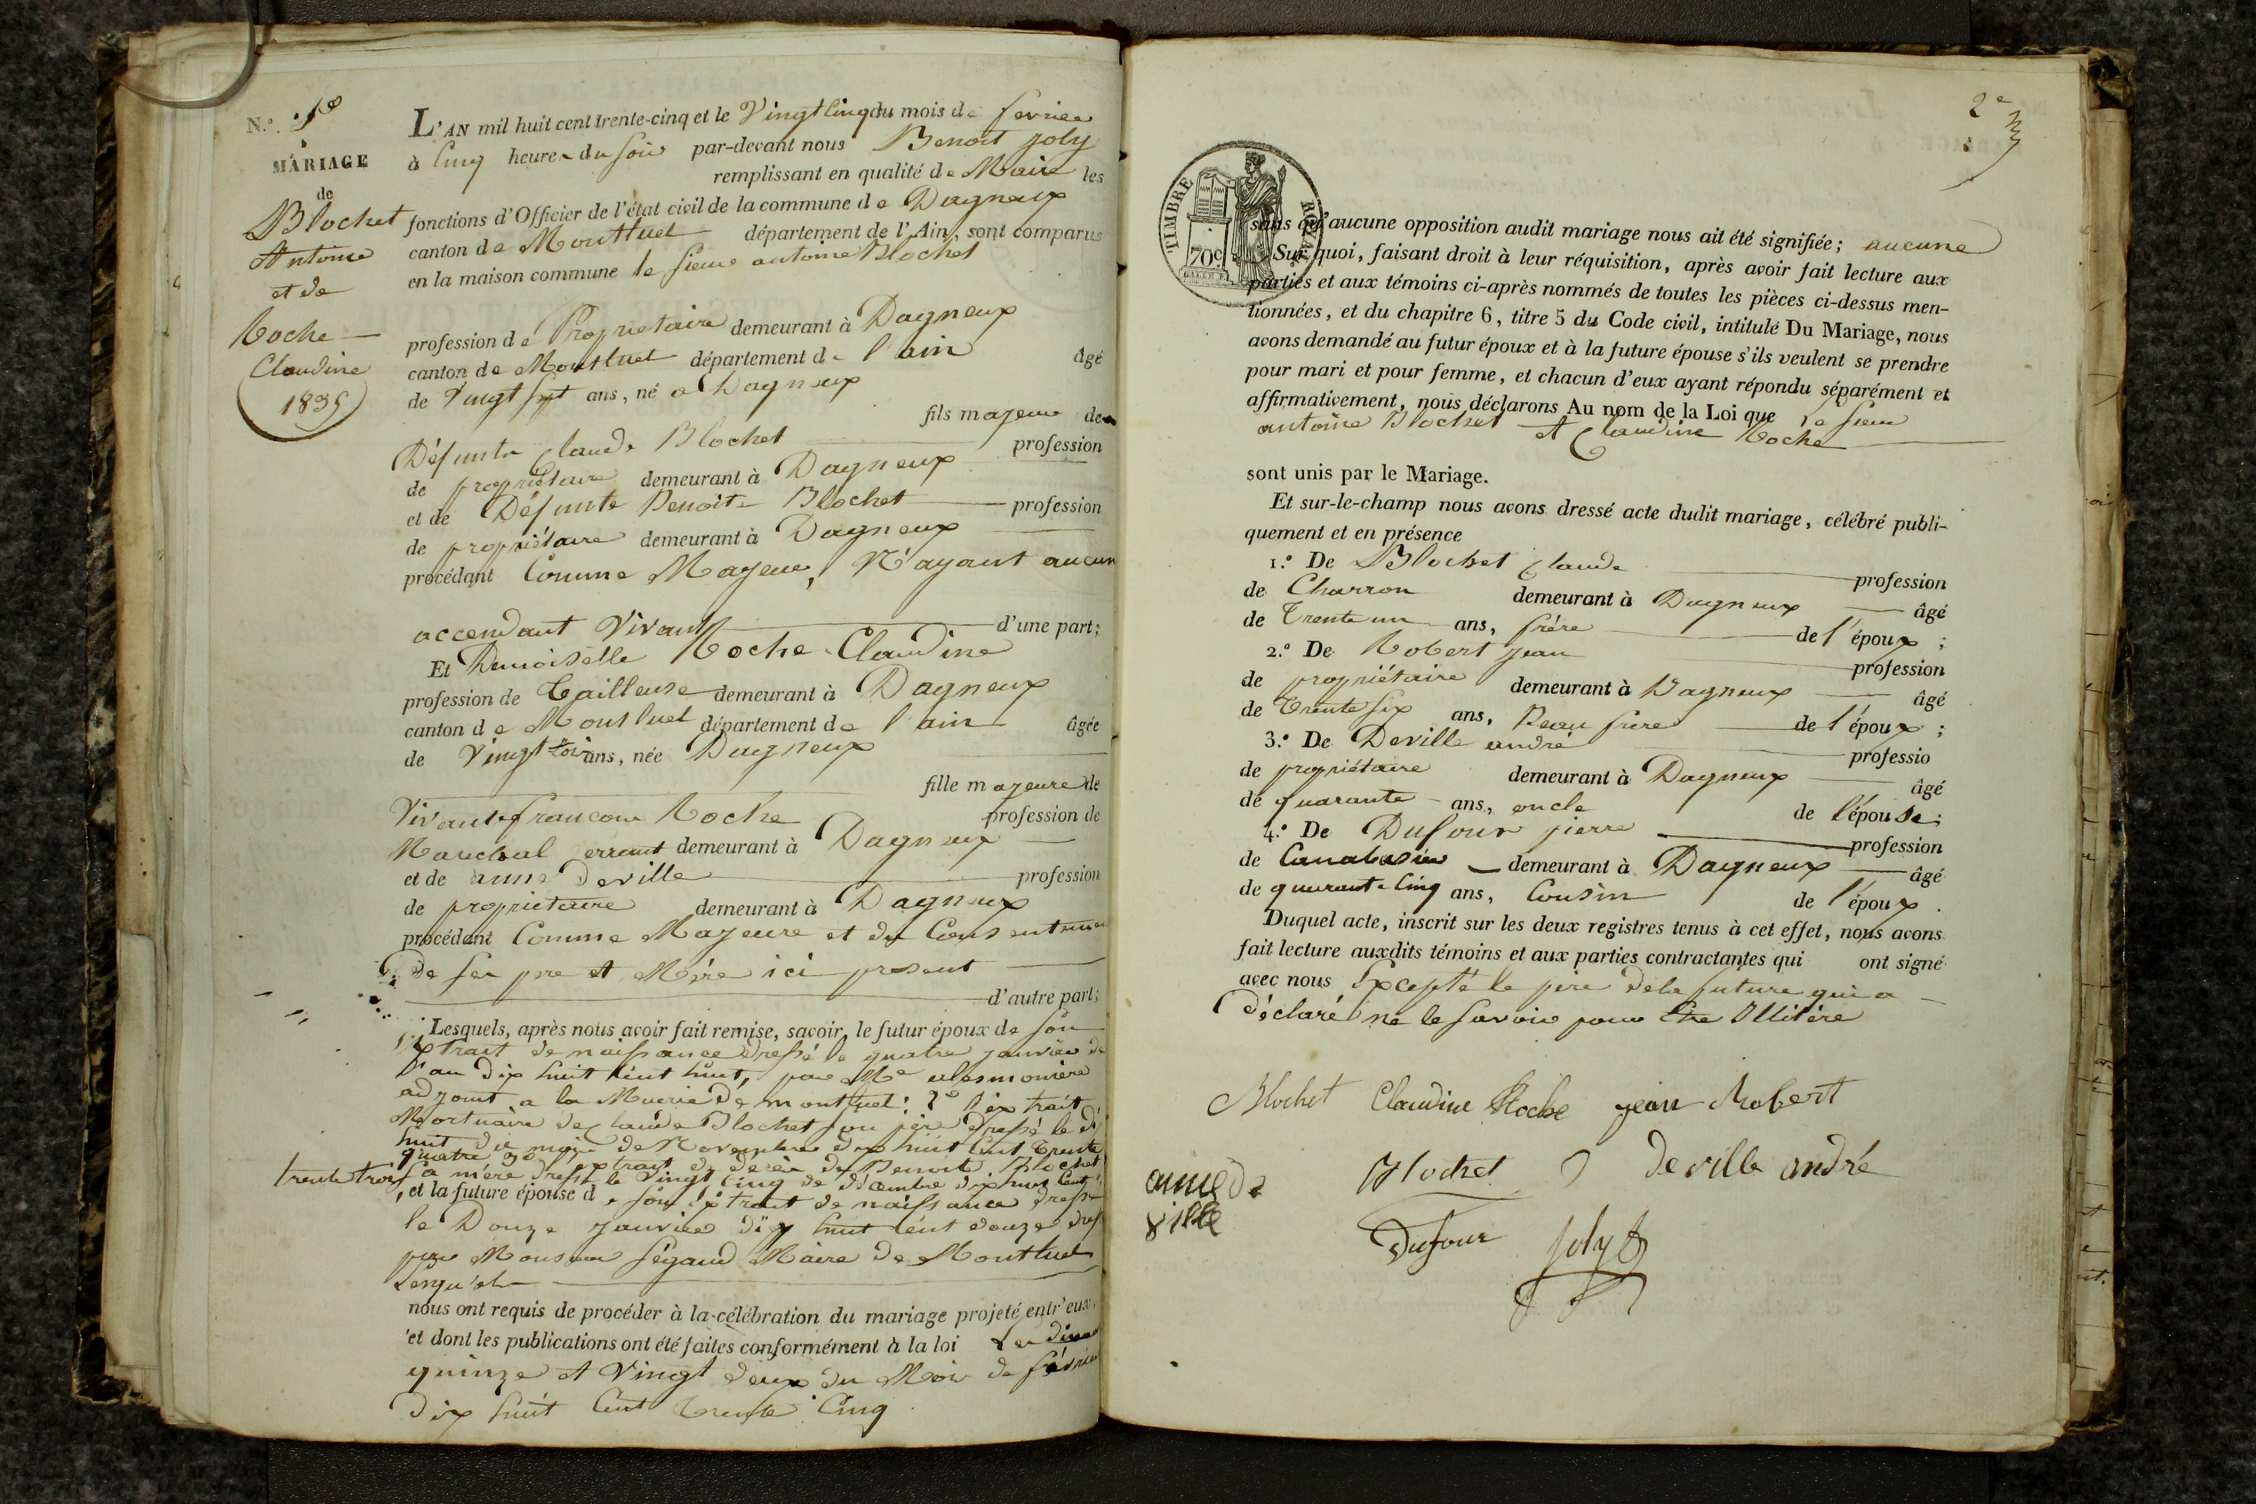 N.º 1er
MARIAGE
de
Blochet
Antoine
et de
Roche
Claudine
1835
L'AN mil huit cent trente-cinq et le Vingt Cinq du mois de fevrier
à Cinq heures du soir par-devant nous Benoit Joly
remplissant en qualité de Maire les
fonctions d'Officier de l'état civil de la commune de Dagneux
canton de Montluel département de l'Ain, sont comparus
en la maison commune le sieur antoine Blochet
profession de Proprietaire demeurant à Dagneux
canton de Montluel département de l'ain âgé
de Vingt sept ans, né a Dagneux
fils majeur de
Défunts Claude Blochet profession
de propriétaire demeurant à Dagneux
et de Défunte Benoite Blochet profession
de propriétaire demeurant à Dagneux
procédant Comme Majeur, N'ayant aucun
accendant Vivant d'une part;
Et Demoiselle Roche Claudine
profession de Tailleuse demeurant à Dagneux
canton de Montluel département de l'ain âgée
de Vingt trois ans, née Dagneux
fille majeure de
Vivant francois Roche profession de
Marechal errant demeurant à Dagneux
et de anne Deville profession
de propriétaire demeurant à Dagneux
procédant Comme Majeure et du Consentement
De ses pre et Mère ici present
d'autre part;
Lesquels, après nous avoir fait remise, savoir, le futur époux de son
Extrait de naissance dressé le quatre janvier de
l'an dix huit cent huit, par Mr
adjoint a la Mairie de montluel; 2º l'extrait
Mortuaire de Claude Blochet son père dressé le dix
huit du mois de Novembre dix huit Cent Trente
quatre 3º extrait de decès de Benoite Blochet
sa mère dressé le Vingt Cinq de décembre dix huit Cent
trente trois
, et la future épouse de son Extrait de naissance dressé
le Douze janvier dix huit cent douze
par Monsieur Ségaud Maire de Montluel
Lesquels
nous ont requis de procéder à la célébration du mariage projeté entr'eux,
et dont les publications ont été faites conformément à la loi Les
quinze et Vingt deux du Mois de février
Dix huit Cent Trente Cinq
2e
TIMBRE ROYAL
70c
sans qu'aucune opposition audit mariage nous ait été signifiée; aucune
Sur quoi, faisant droit à leur réquisition, après avoir fait lecture aux
parties et aux témoins ci-après nommés de toutes les pièces ci-dessus men-
tionnées, et du chapitre 6, titre 5 du Code civil, intitulé Du Mariage, nous
avons demandé au futur époux et à la future épouse s'ils veulent se prendre
pour mari et pour femme, et chacun d'eux ayant répondu séparément et
affirmativement, nous déclarons Au nom de la Loi que le sieur
antoine Blochet et Claudine Roche
sont unis par le Mariage.
Et sur-le-champ nous avons dressé acte dudit mariage, célébré publi-
quement et en présence
1.º De Blochet Claude profession
de Charron demeurant à Dagneux âgé
de Trente un ans, frére de l'époux;
2.º De Robert Jean profession
de propriétaire demeurant à Dagneux âgé
de Trente six ans, Beau frère de l'époux;
3.º De Deville andré professio
de propriétaire demeurant à Dagneux âgé
de quarante ans, oncle de l'épouse;
4.º De Dufour pierre profession
de demeurant à Dagneux âgé
de quarante Cinq ans, Cousin de l'époux.
Duquel acte, inscrit sur les deux registres tenus à cet effet, nous avons
fait lecture auxdits témoins et aux parties contractantes qui ont signé
avec nous Excepté le pere de la future qui a
Déclaré ne le savoir pour être Illitére
Blochet Claudine Roche jean Robert
anne de
ville
Blochet deville andré
Dufour Joly